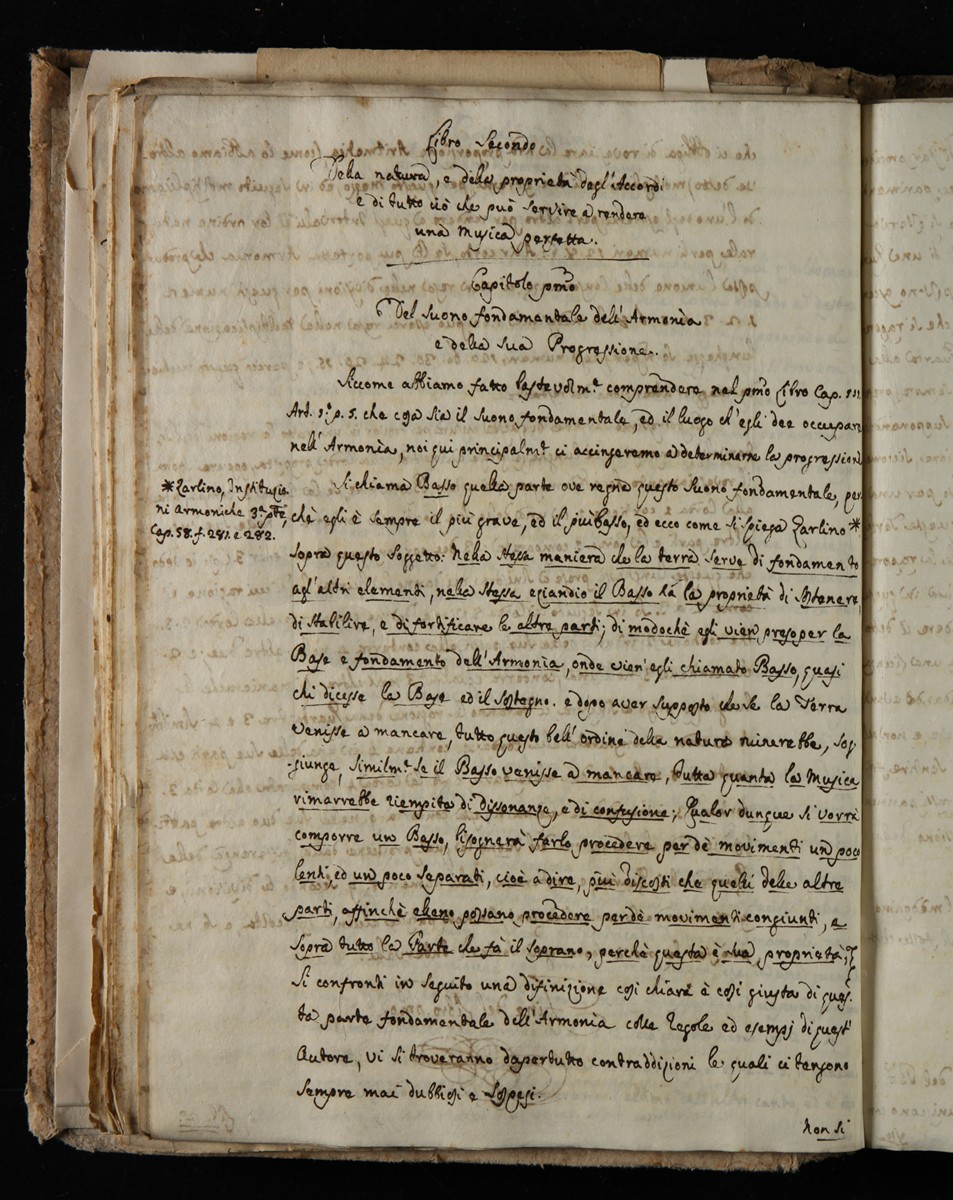 Libro Secondo
Della natura, e della proprietà degl'Accordi
e di tutto ciò che può servire a rendere
una Musica perfetta.
Capitolo pmo
Del Suono fondamentale dell'Armonìa
e della sua Progressione.
Siccome abbiamo fatto bastevolmte comprendere nel pmo Libro Cap.
Art. p. 5. che cosa sia il Suono fondamentale, ed il luogo ch'egli dee occupare
nell'Armonìa, noi qui principalmte ci accingeremo a determinarne la progressione
Si chiama Basso quella parte ove regna questo Suono fondamentale, per
*Zarlino, Instituzio-
ni Armoniche 3a pte,
Cap. 58. f. 281. e 282.
chè egli è sempre il più grave, ed il più basso, ed ecco come si spiega Zarlino*
sopra questo soggetto: nella stessa maniera che la terra serve di fondamento
agl'altri elementi, nella stessa eziandio il Basso hà la proprietà di sostenere,
di stabilire, e di fortificare le altre parti; di modochè egli vien preso per la
Base e fondamento dell'Armonìa, onde vien'egli chiamato Basso, quasi
chi dicesse la Base ed il sostegno. e dopo aver supposto che se la Terra
venisse a mancare, tutto questo bell'ordine della natura ruinerebbe, sog-
-giunge, similmte se il Basso venisse a mancare, tutta quanta la Musica
rimarrebbe riempita di dissonanze, e di confusione; Qualor dunque si vorrà
comporre un Basso, bisognerà farlo procedere per dè movimenti un poco
lenti, ed un poco separati, cioè a dire, più discosti che quelli delle altre
parti, affinchè elleno possano procedere per dè movimenti congiunti, e
sopra tutto la Parte che fà il soprano, perchè questa è sua proprietà;
Si confronti in seguito una difinizione così chiara è così giusta di ques-
ta parte fondamentale dell'Armonìa colle regole ed esempj di quest'
Autore, vi si troveranno dapertutto contraddizioni le quali ci tengono
sempre mai dubbiosi e sospesi.
Non si